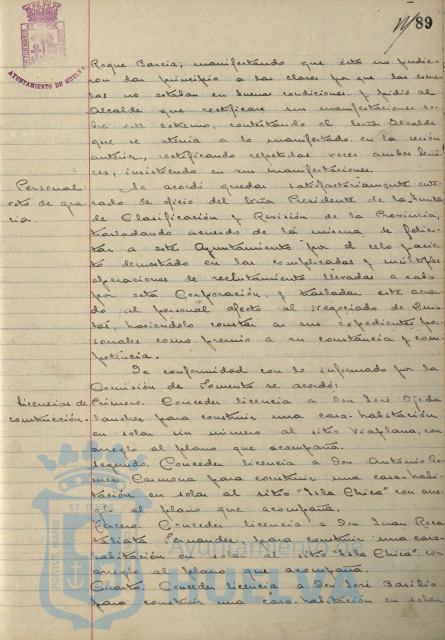 89
AYUNTAMIENTO DE HUELVA
Roque Barcia; manifestando que éstos no pudie-
ron dar principio a las clases por que las escue-
las no estaban en buenas condiciones y pidió al
Alcalde que rectificase sus manifestaciones so-
bre este extremo, contestando el Señor Alcalde
que se atenía a lo manifestado en la sesión
anterior, rectificando repetidas veces ambos Seño-
res, insistiendo en sus manifestaciones.
Personal:
voto de gra-
cia.
Se acordó quedar satisfactoriamente ente-
rado de oficio del Señor Presidente de la Junta
de Clasificación y Revisión de la Provincia,
trasladando acuerdo de la misma de felici-
tar a este Ayuntamiento por el celo
demostrado en las complicadas y múltiples
operaciones de reclutamiento llevadas a cabo
por esta Corporación, y trasladar este acuer-
do al personal afecto al Negociado de Quin-
tas, haciéndolo constar en sus expedientes per-
sonales como premio a su constancia y com-
petencia.
De conformidad con lo informado por la
Comisión de Fomento se acordó:
licencias de
construcción.
Primero. Conceder licencia a Don José Ojeda
Sanchez para construir una casa-habitación
en solar sin número al sitio Viaplana, con
arreglo al plano que acompaña.
Segundo. Conceder licencia a Don Antonio Ro-
mero Carmona para construir una casa-habi-
tación en solar al sitio "Isla Chica" con arre-
glo al plano que acompaña.
Tercero. Conceder licencia a Don Juan Roca
Fernandez, para construir una casa-
habitación en solar al sitio "Isla Chica" con
arreglo al plano que acompaña.
Cuarto. Conceder licencia a Don José Basilio
para construir una casa-habitación en solar
PORTUS MARIS
ET TERRAE
Ayuntamiento
HUELVA